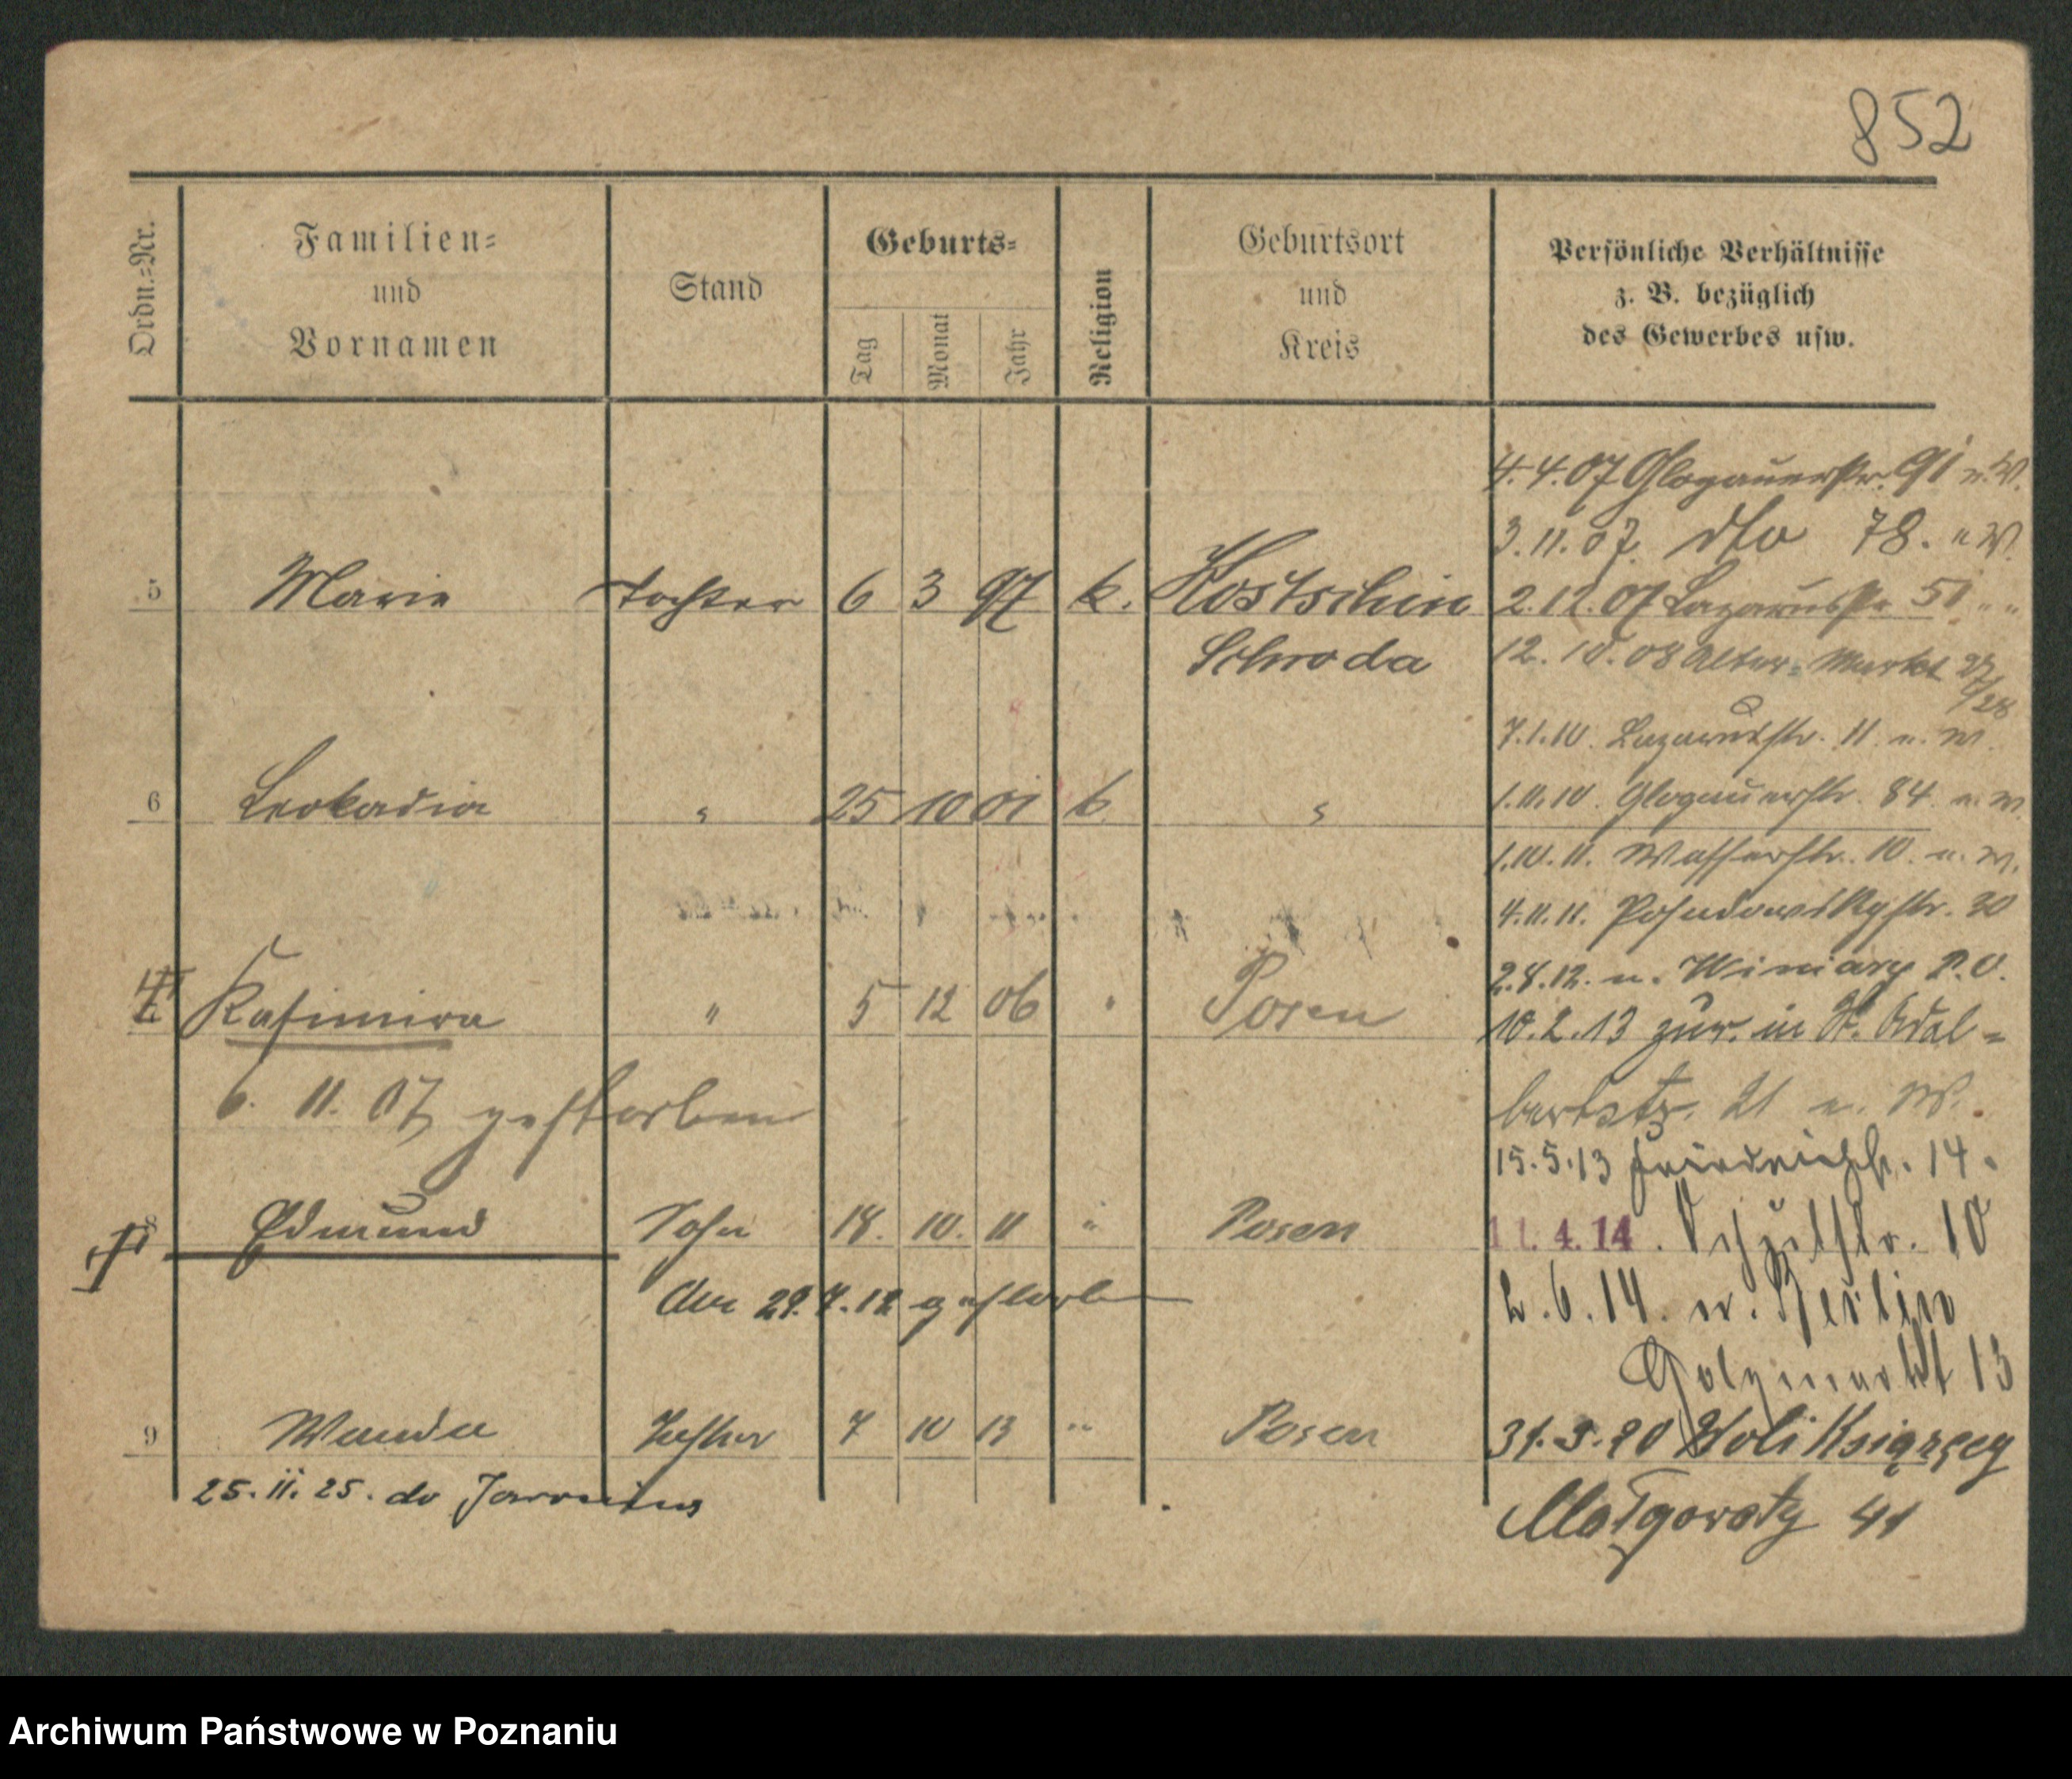 852
Ordn.=Nr.
Familien=
und
Vornamen
Stand
Geburts=
Tag
Monat
Jahr
Religion
Geburtsort
und
Kreis
Persönliche Verhältnisse
z. B. bezüglich
des Gewerbes usw.
4.4.07 Glogauerstr. 91 n. W.
3.11.07 dto 78. " W.
5 Marie Tochter 6 3 97 k. Kostschin 2.12.07 Lazarusstr. 51 " "
Schroda 12.10.08 Alter=Markt 27/28
7.1.10. Lazarusstr. 11 n. W.
6 Leokadia " 25 10 01 k. " 1.11.10. Glogauerstr. 84 n. W.
1.10.11. Wasserstr. 10. n. W.
4.11.11. Posadowskystr. 30
2.8.12. n. Winiary P.O.
Kasimira " 5 12 06 " Posen 10.2.13 zur. in St. Adal=
6. 11. 07 gestorben bertstr. 21 n. W.
15.5.13 Friedrichstr. 14.
8 Edmund Sohn 18. 10. 11 " Posen 11.4.14. Schulstr. 10
Am 29.7.12 gestorben 2.6.14. n. Berlin
13
9 Wanda Tochter 7 10 13 " Posen 31.3.20 Woli Książęcej
25.11.25. do Małgorzaty 41